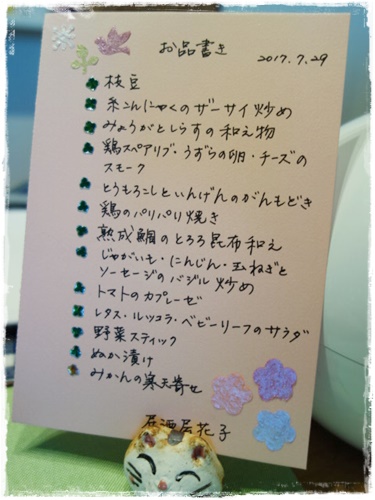 お品書き
2017.7.29
枝豆
糸こんにゃくのザーサイ炒め
みょうがとしらすの和え物
鶏スペアリブ・うずらの卵・チーズの
スモーク
とうもろこしといんげんのがんもどき
鶏のパリパリ焼き
熟成鯛のとろろ昆布和え
じゃがいも・にんじん・玉ねぎと
ソーセージのバジル炒め
トマトのカプレーゼ
レタス・ルッコラ・ベビーリーフのサラダ
野菜スティック
ぬか漬け
みかんの寒天寄せ
居酒屋花子